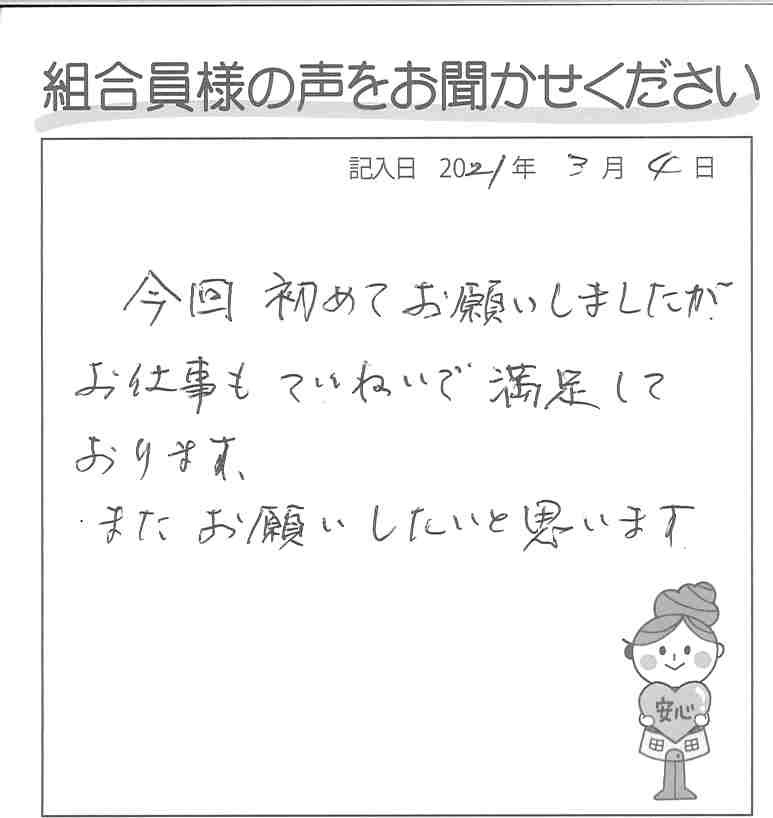 組合員様の声をお聞かせください
記入日 2021年 3月 4日
今回 初めてお願いしましたが
お仕事も ていねいで 満足して
おります、
また お願いしたいと思います
安心